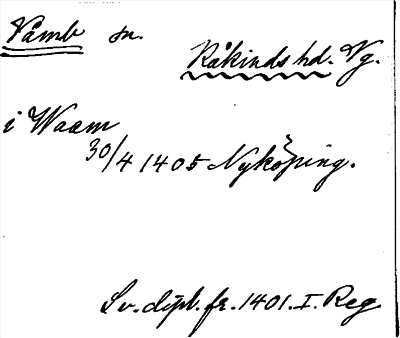 Våmb sn.
Kåkinds hd. Vg.
i Waam
30/4 1405 Nyköping.
Sv. dipl. fr. 1401. I. Reg